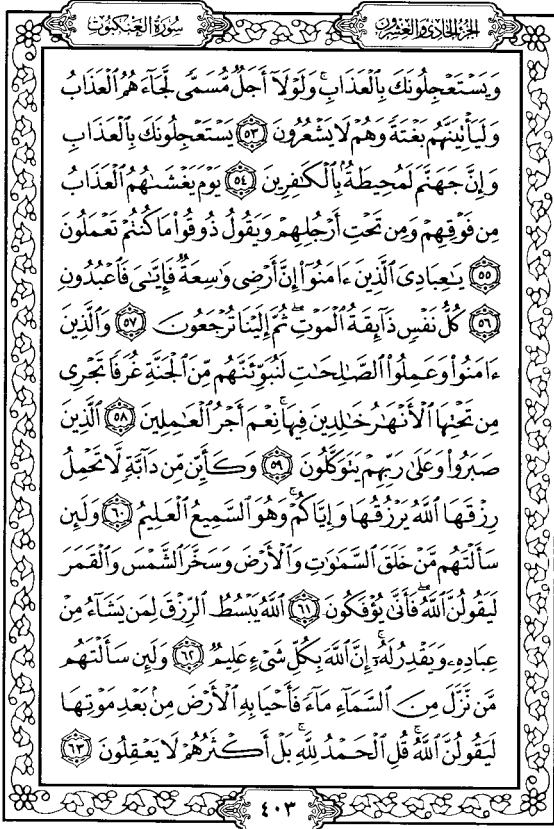 سُورَةُ العَنكَبُوت
الجُزْءُ الحَادِي وَالعِشْرُونَ
وَيَسْتَعْجِلُونَكَ بِٱلْعَذَابِ ۚ وَلَوْلَآ أَجَلٌ مُّسَمًّى لَّجَآءَهُمُ ٱلْعَذَابُ
وَلَيَأْتِيَنَّهُم بَغْتَةً وَهُمْ لَا يَشْعُرُونَ ٥٣ يَسْتَعْجِلُونَكَ بِٱلْعَذَابِ
وَإِنَّ جَهَنَّمَ لَمُحِيطَةٌۢ بِٱلْكَـٰفِرِينَ ٥٤ يَوْمَ يَغْشَىٰهُمُ ٱلْعَذَابُ
مِن فَوْقِهِمْ وَمِن تَحْتِ أَرْجُلِهِمْ وَيَقُولُ ذُوقُوا۟ مَا كُنتُمْ تَعْمَلُونَ
٥٥ يَـٰعِبَادِىَ ٱلَّذِينَ ءَامَنُوٓا۟ إِنَّ أَرْضِى وَٰسِعَةٌ فَإِيَّـٰىَ فَٱعْبُدُونِ
٥٦ كُلُّ نَفْسٍ ذَآئِقَةُ ٱلْمَوْتِ ۖ ثُمَّ إِلَيْنَا تُرْجَعُونَ ٥٧ وَٱلَّذِينَ
ءَامَنُوا۟ وَعَمِلُوا۟ ٱلصَّـٰلِحَـٰتِ لَنُبَوِّئَنَّهُم مِّنَ ٱلْجَنَّةِ غُرَفًا تَجْرِى
مِن تَحْتِهَا ٱلْأَنْهَـٰرُ خَـٰلِدِينَ فِيهَا ۚ نِعْمَ أَجْرُ ٱلْعَـٰمِلِينَ ٥٨ ٱلَّذِينَ
صَبَرُوا۟ وَعَلَىٰ رَبِّهِمْ يَتَوَكَّلُونَ ٥٩ وَكَأَيِّن مِّن دَآبَّةٍ لَّا تَحْمِلُ
رِزْقَهَا ٱللَّهُ يَرْزُقُهَا وَإِيَّاكُمْ ۚ وَهُوَ ٱلسَّمِيعُ ٱلْعَلِيمُ ٦٠ وَلَئِن
سَأَلْتَهُم مَّنْ خَلَقَ ٱلسَّمَـٰوَٰتِ وَٱلْأَرْضَ وَسَخَّرَ ٱلشَّمْسَ وَٱلْقَمَرَ
لَيَقُولُنَّ ٱللَّهُ ۖ فَأَنَّىٰ يُؤْفَكُونَ ٦١ ٱللَّهُ يَبْسُطُ ٱلرِّزْقَ لِمَن يَشَآءُ مِنْ
عِبَادِهِۦ وَيَقْدِرُ لَهُۥٓ ۚ إِنَّ ٱللَّهَ بِكُلِّ شَىْءٍ عَلِيمٌ ٦٢ وَلَئِن سَأَلْتَهُم
مَّن نَّزَّلَ مِنَ ٱلسَّمَآءِ مَآءً فَأَحْيَا بِهِ ٱلْأَرْضَ مِنۢ بَعْدِ مَوْتِهَا
لَيَقُولُنَّ ٱللَّهُ ۚ قُلِ ٱلْحَمْدُ لِلَّهِ ۚ بَلْ أَكْثَرُهُمْ لَا يَعْقِلُونَ ٦٣
٤٠٣